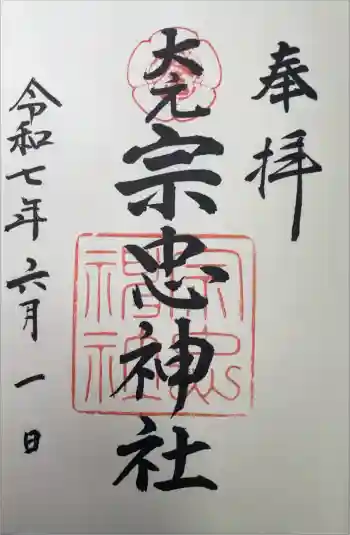 奉拝
大元
宗忠神社
令和七年六月一日
宗忠
神社